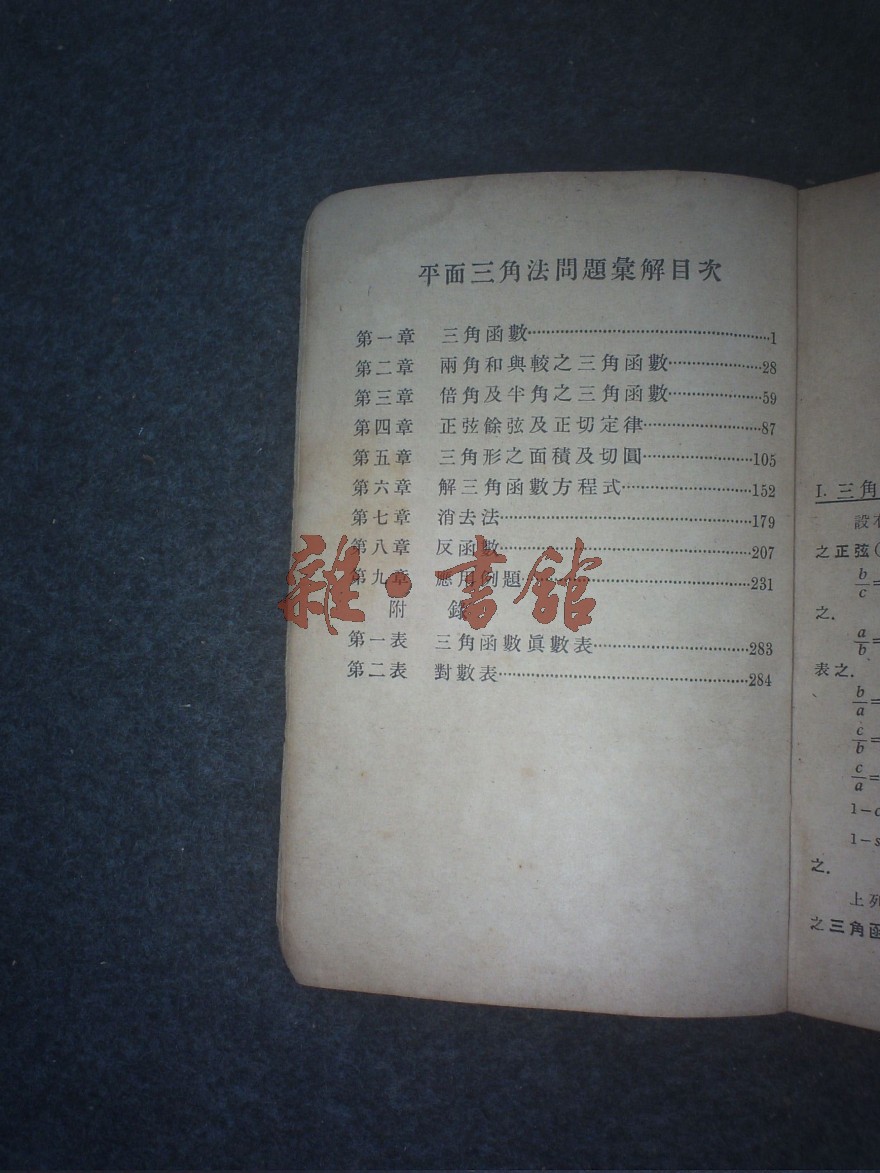 平面三角法問題彙解目次
第一章 三角函數……1
第二章 兩角和與較之三角函數……28
第三章 倍角及半角之三角函數……59
第四章 正弦餘弦及正切定律……87
第五章 三角形之面積及切圓……105
第六章 解三角函數方程式……152
第七章 消去法……179
第八章 反函數……207
第九章 應用例題……231
附 錄
第一表 三角函數眞數表……283
第二表 對數表……284
雜·書館
I. 三角
設
之正弦(
b/c=
之.
a/b=
表之.
b/a=
c/b=
c/a=
1-
1-s
之.
上列
之三角函